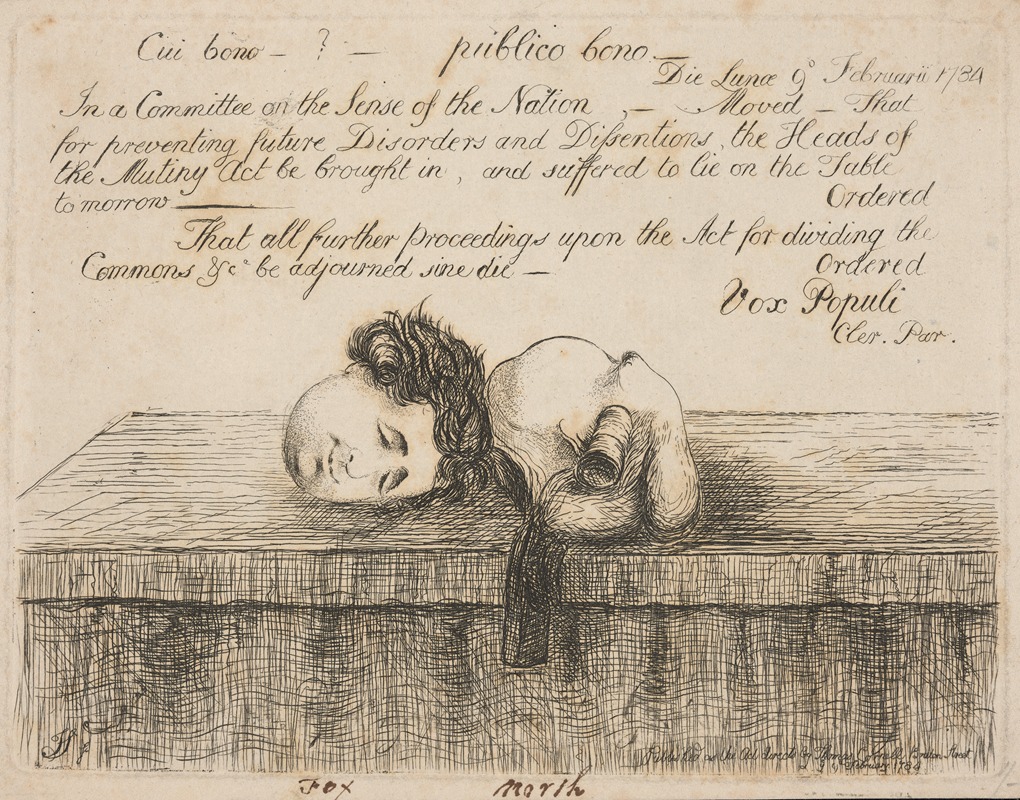 Cui bono — ? — publico bono. —
Die Lunæ 9° Februarii 1784
In a Committee on the Sense of the Nation — Moved — That
for preventing future Disorders and Dissentions, the Heads of
the Mutiny Act be brought in, and suffered to lie on the Table
tomorrow — Ordered
That all further Proceedings upon the Act for dividing the
Commons &c. be adjourned sine die —
Ordered
Vox Populi
Cler. Par.
Published as the Act directs by Thomas Street
February 1784
Fox North